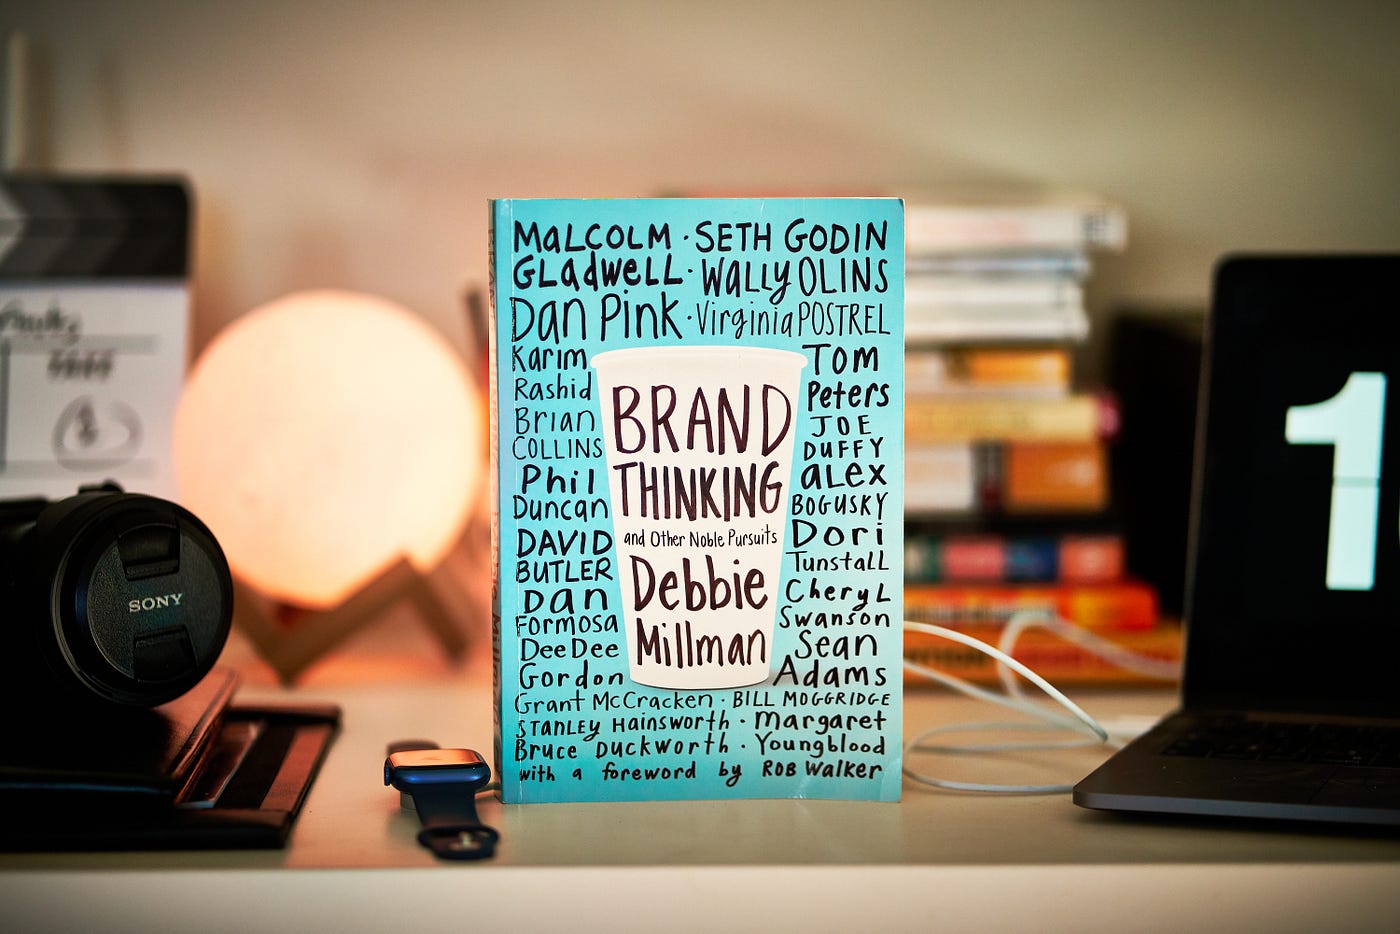 MaLCOLM · SETH GODIN
GLadwELL · WALLy OLINS
Dan Pink · Virginia POSTREL
Karim
Rashid
Brian
COLLINS
Phil
Duncan
DAVID
BUTLER
Dan
Formosa
Dee Dee
Gordon
BRAND
THINKING
and Other Noble Pursuits
Debbie
Millman
TOM
Peters
JOE
DUFFY
aLEX
BOGUSKY
Dori
TunstaLL
CheryL
Swanson
Sean
Adams
Grant McCracken · BILL MOGGRIDGE
STANLEY Hainsworth · Margaret
Bruce Duckworth · Youngblood
with a foreword by ROB Walker
SONY
1